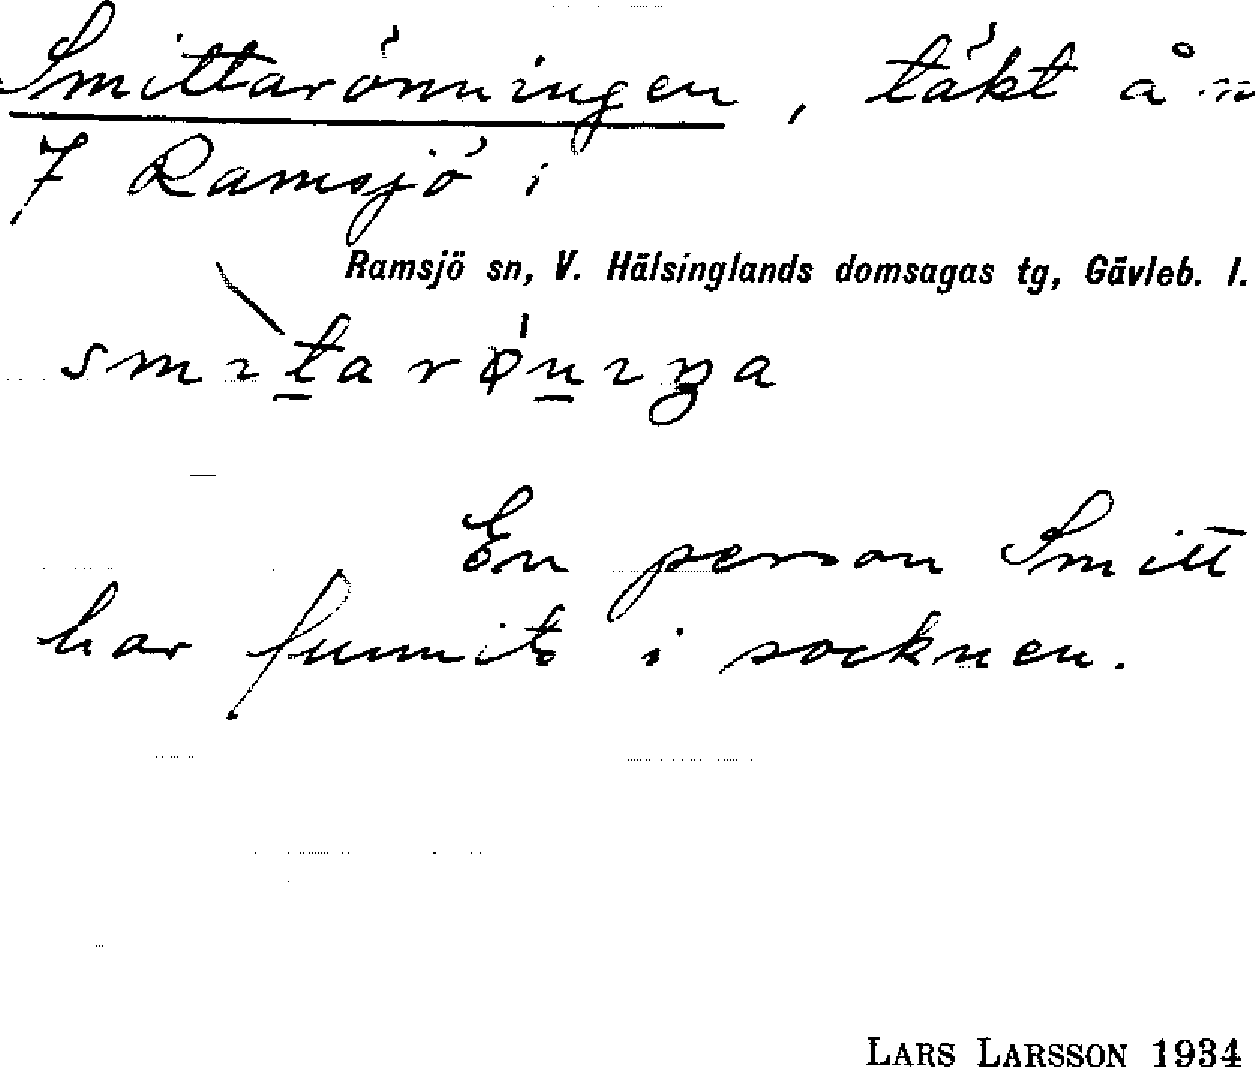 Smittarönningen, täkt å n
7 Ramsjö i
Ramsjö sn, V. Hälsinglands domsagas tg, Gävleb. l.
smıt̲arøn̲ıŋa
En person Smitt
har funnits i socknen.
LARS LARSSON 1934